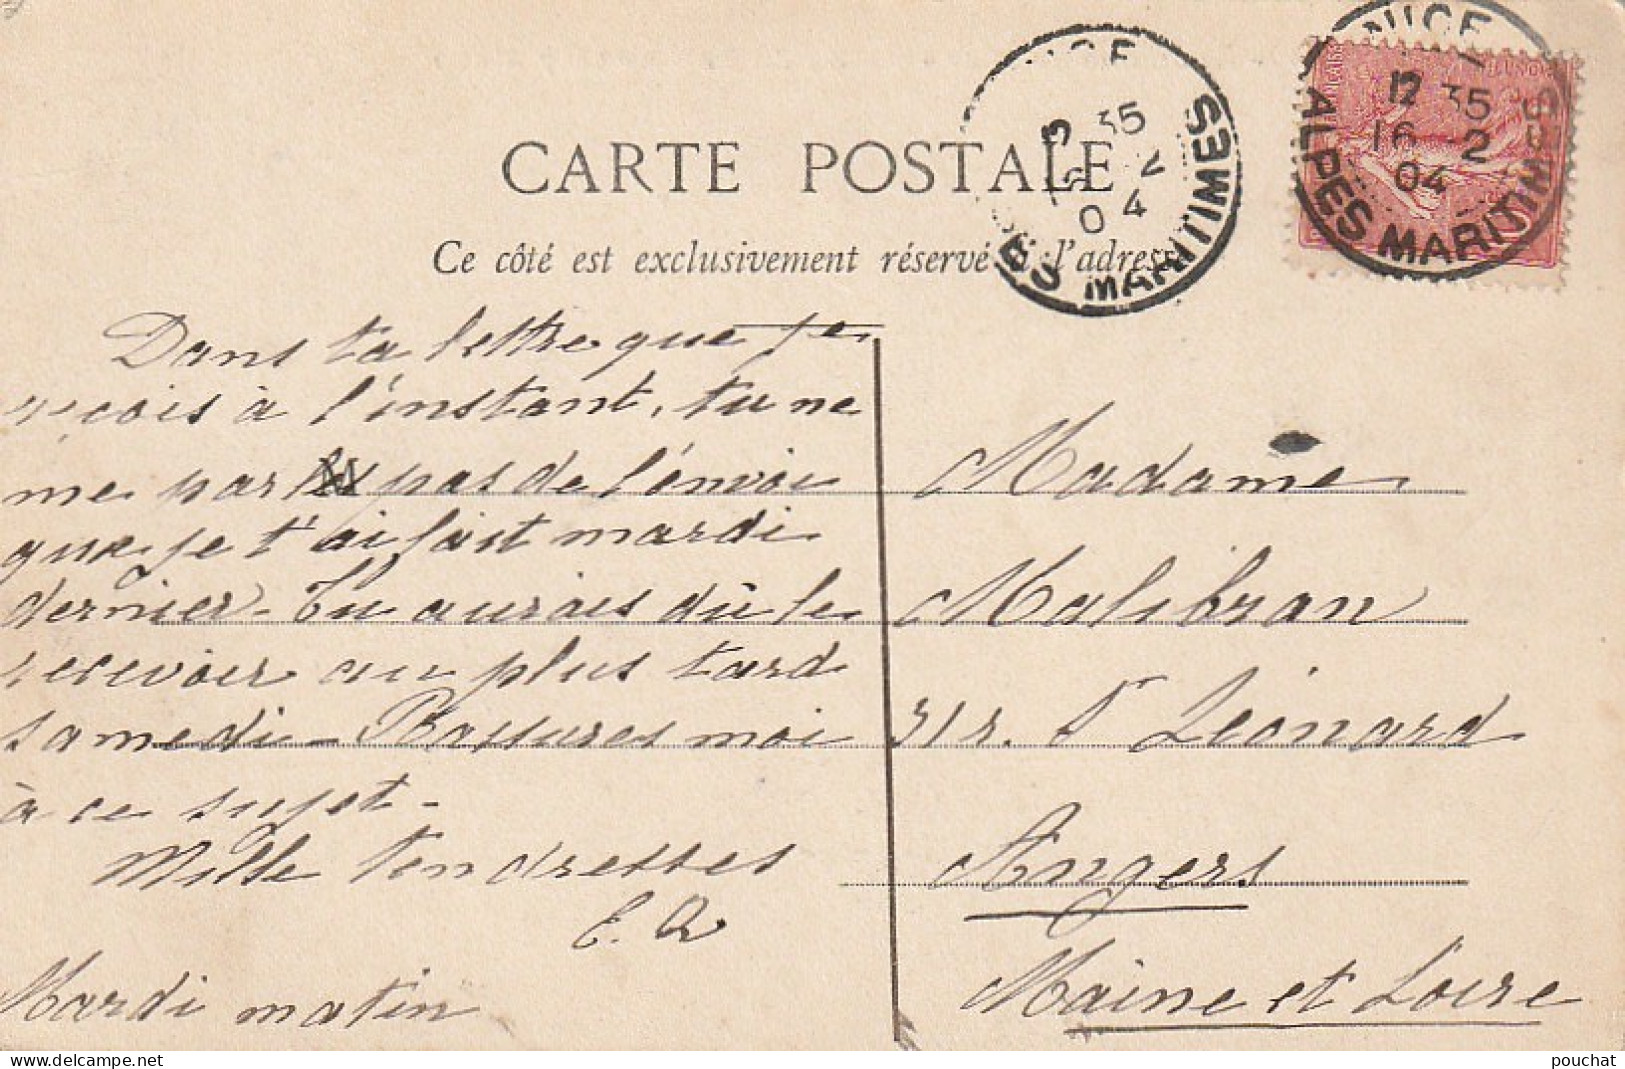 NICE
12 35
16 -2
04
ALPES MARITIMES
35
04
MARITIMES
CARTE POSTALE
Ce côté est exclusivement réservé à l'adresse
Dans ta lettre que je
reçois à l'instant, tu ne
me parl pas de l'envoi
que je t'ai fait mardi
dernier - Tu aurais dû le
recevoir au plus tard
samedi - Rassures moi
à ce sujet -
Mille tendresses
E. R
Mardi matin
Madame
Malibran
31 r. St Léonard
Angers
Maine et Loire
pouchat